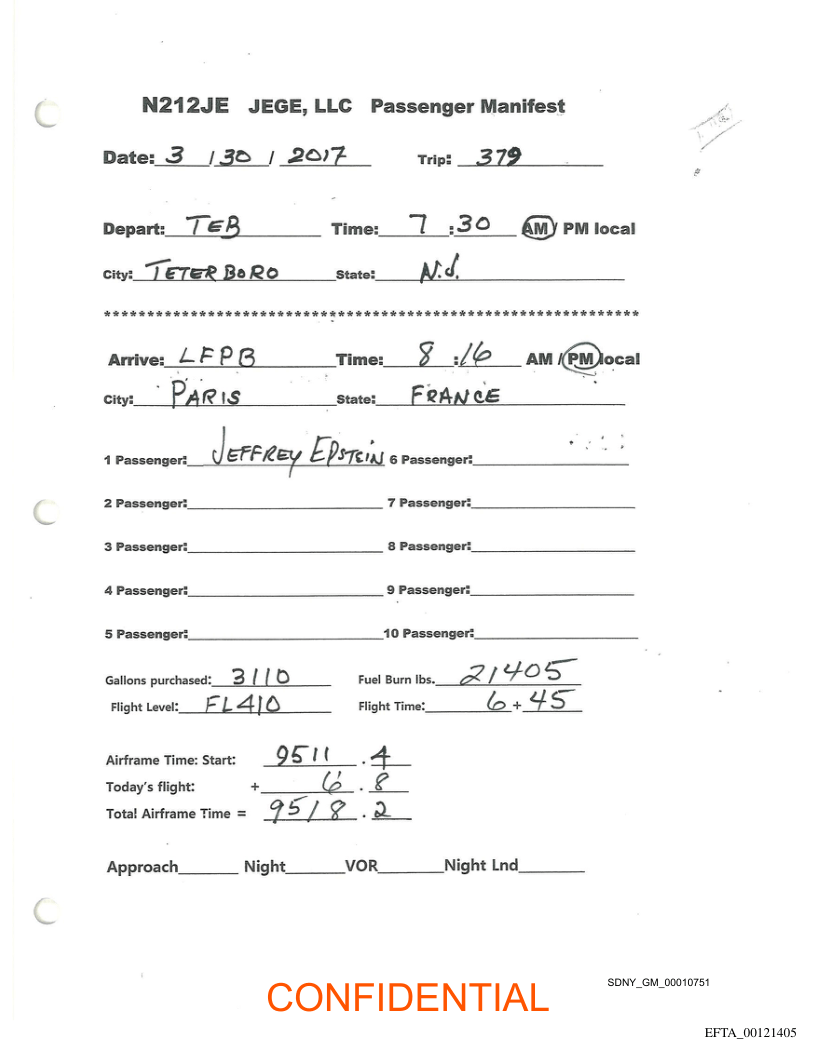 N212JE JEGE, LLC Passenger Manifest
Date: 3 / 30 / 2017 Trip: 379
Depart: TEB Time: 7 :30 AM / PM local
City: TETERBORO State: N.J.
****************************************************************
Arrive: LFPB Time: 8 :16 AM / PM local
City: PARIS State: FRANCE
1 Passenger: JEFFREY EPSTEIN 6 Passenger:
2 Passenger: 7 Passenger:
3 Passenger: 8 Passenger:
4 Passenger: 9 Passenger:
5 Passenger: 10 Passenger:
Gallons purchased: 3110 Fuel Burn lbs. 21405
Flight Level: FL410 Flight Time: 6 + 45
Airframe Time: Start: 9511 . 4
Today's flight: + 6 . 8
Total Airframe Time = 9518 . 2
Approach Night VOR Night Lnd
SDNY_GM_00010751
CONFIDENTIAL
EFTA_00121405